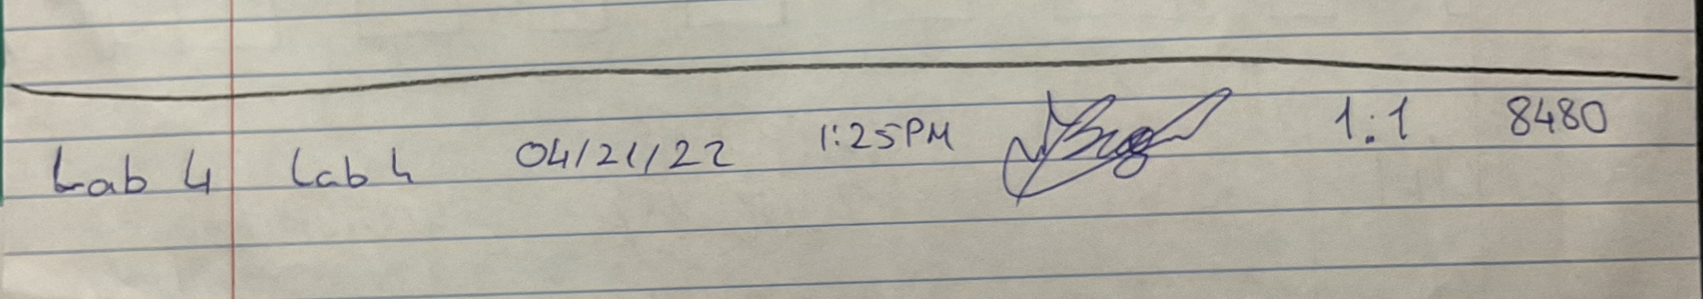 Lab 4 Lab 4 04/21/22 1:25PM 1:1 8480